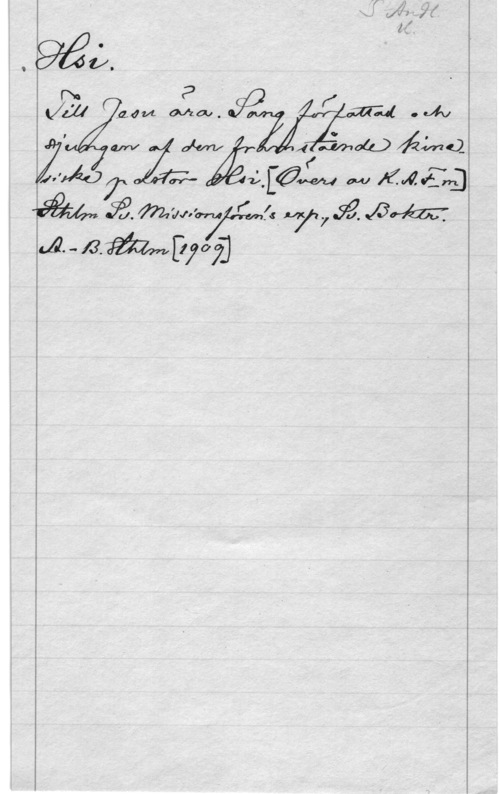 S Andl.
K.
Hsi.
Till Jesu ära. Sång författad och
sjungen af den framstående kine-
siske pastor Hsi. [Övers av K.A.F-m]
Sthlm Sv. Missionsfören:s exp., Sv. Boktr.
A.-B. Sthlm [1909]